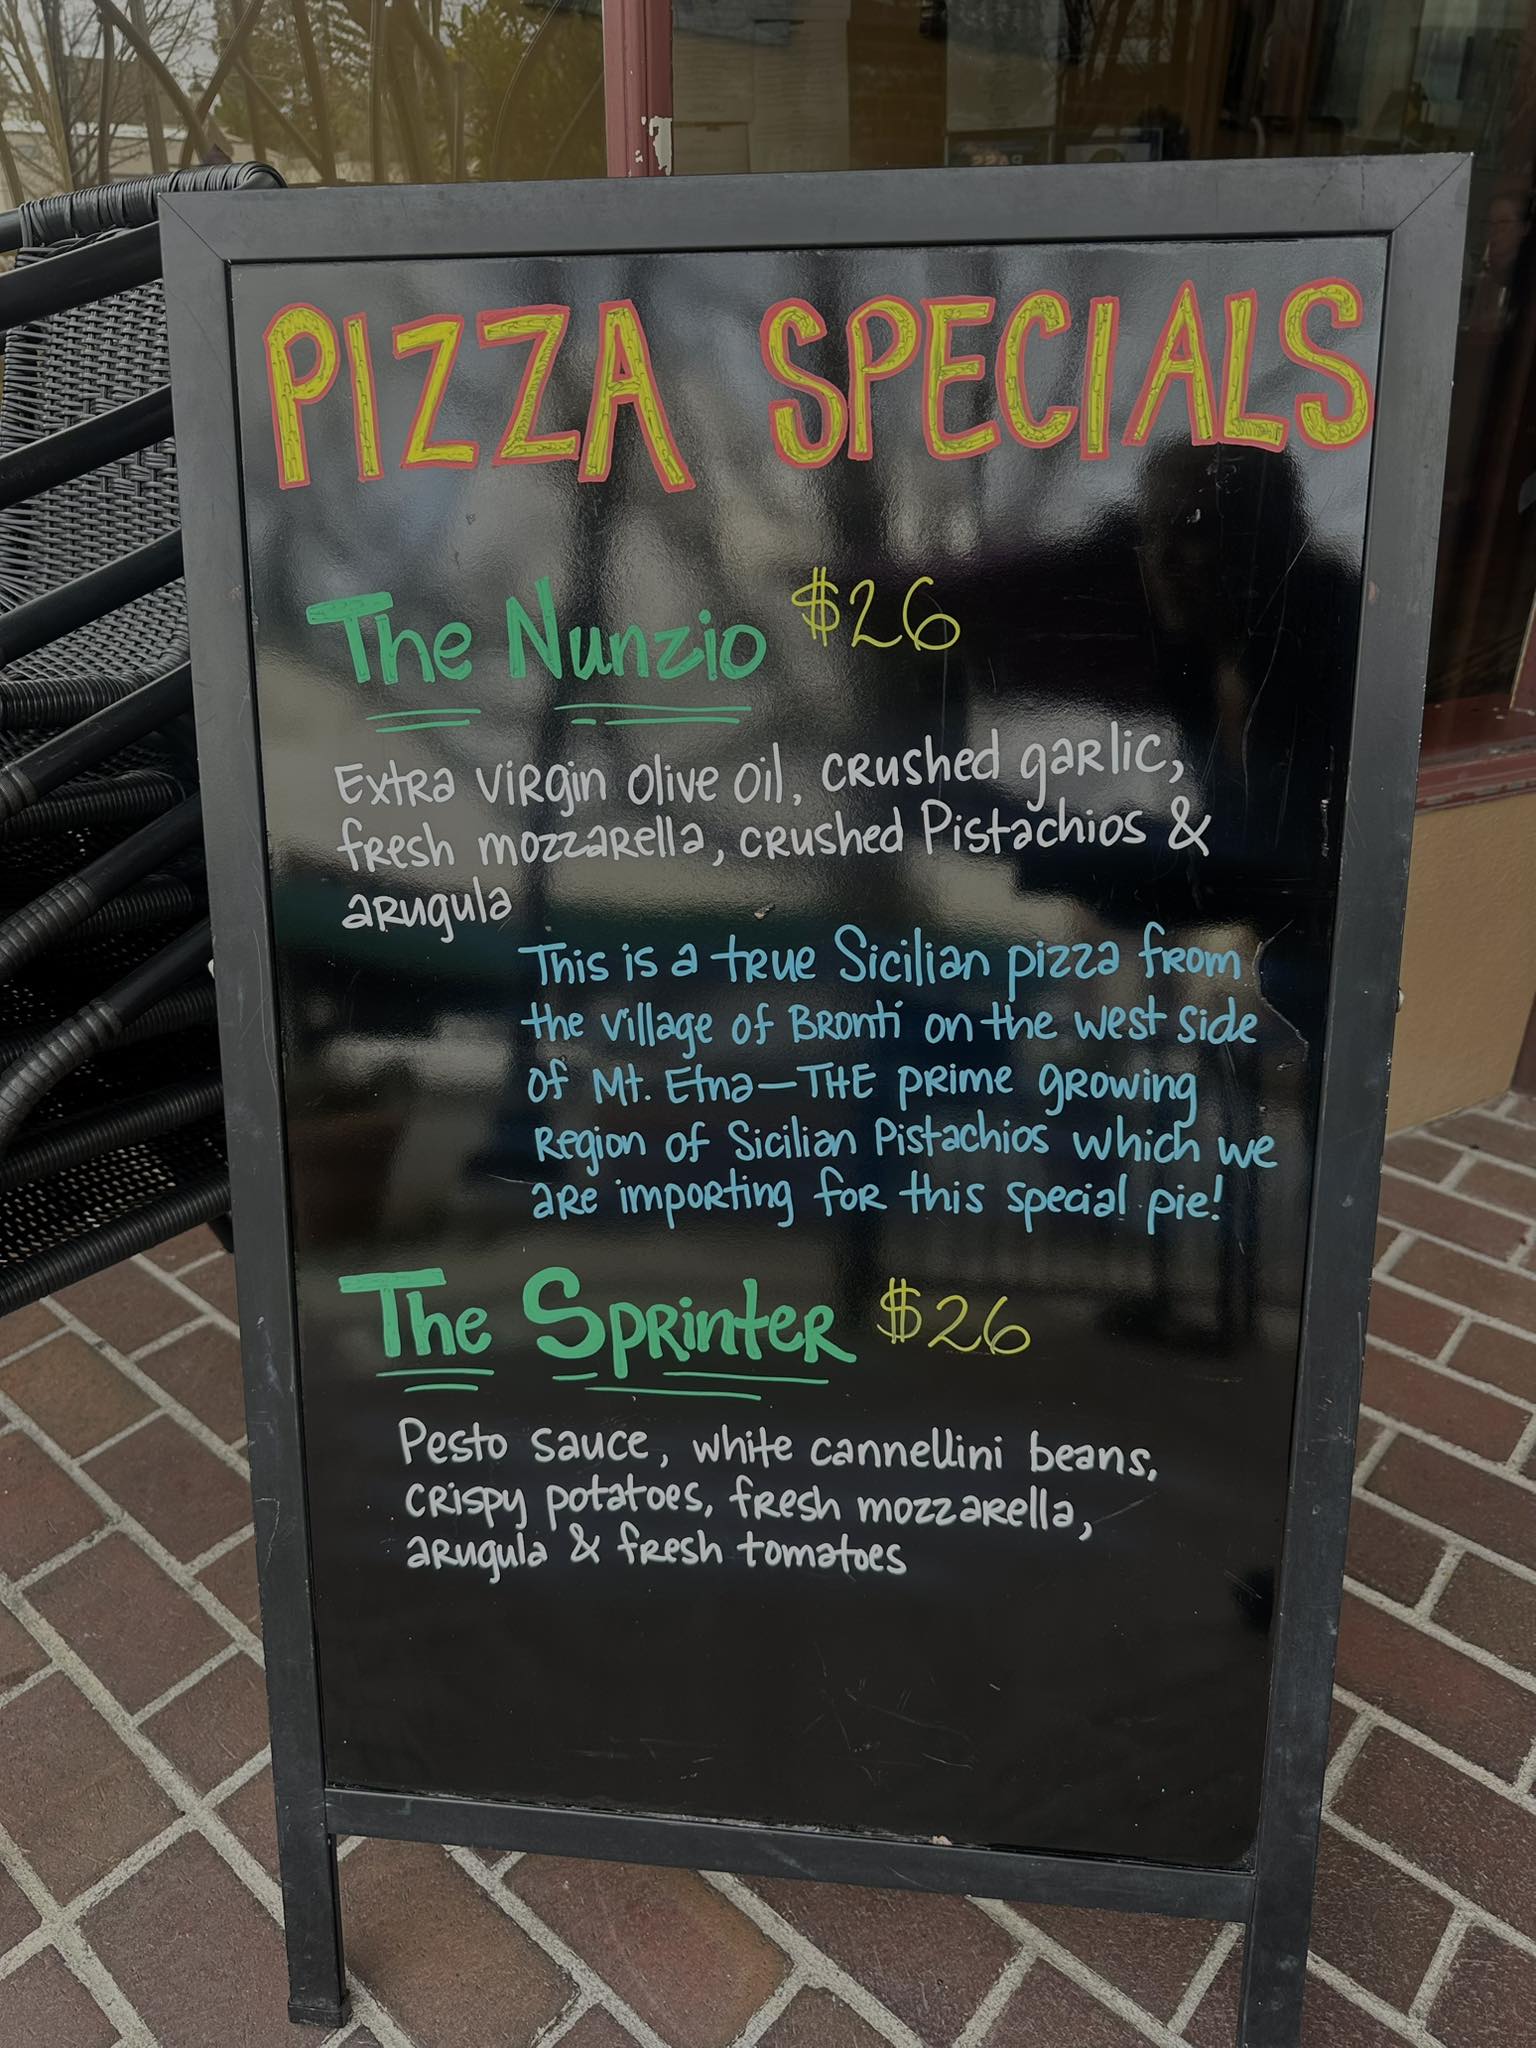 PIZZA SPECIALS
The Nunzio $26
Extra virgin olive oil, crushed garlic,
fresh mozzarella, crushed Pistachios &
arugula
This is a true Sicilian pizza from
the village of Bronti on the west side
of Mt. Etna—THE prime growing
region of Sicilian Pistachios which we
are importing for this special pie!
The Sprinter $26
Pesto sauce, white cannellini beans,
crispy potatoes, fresh mozzarella,
arugula & fresh tomatoes